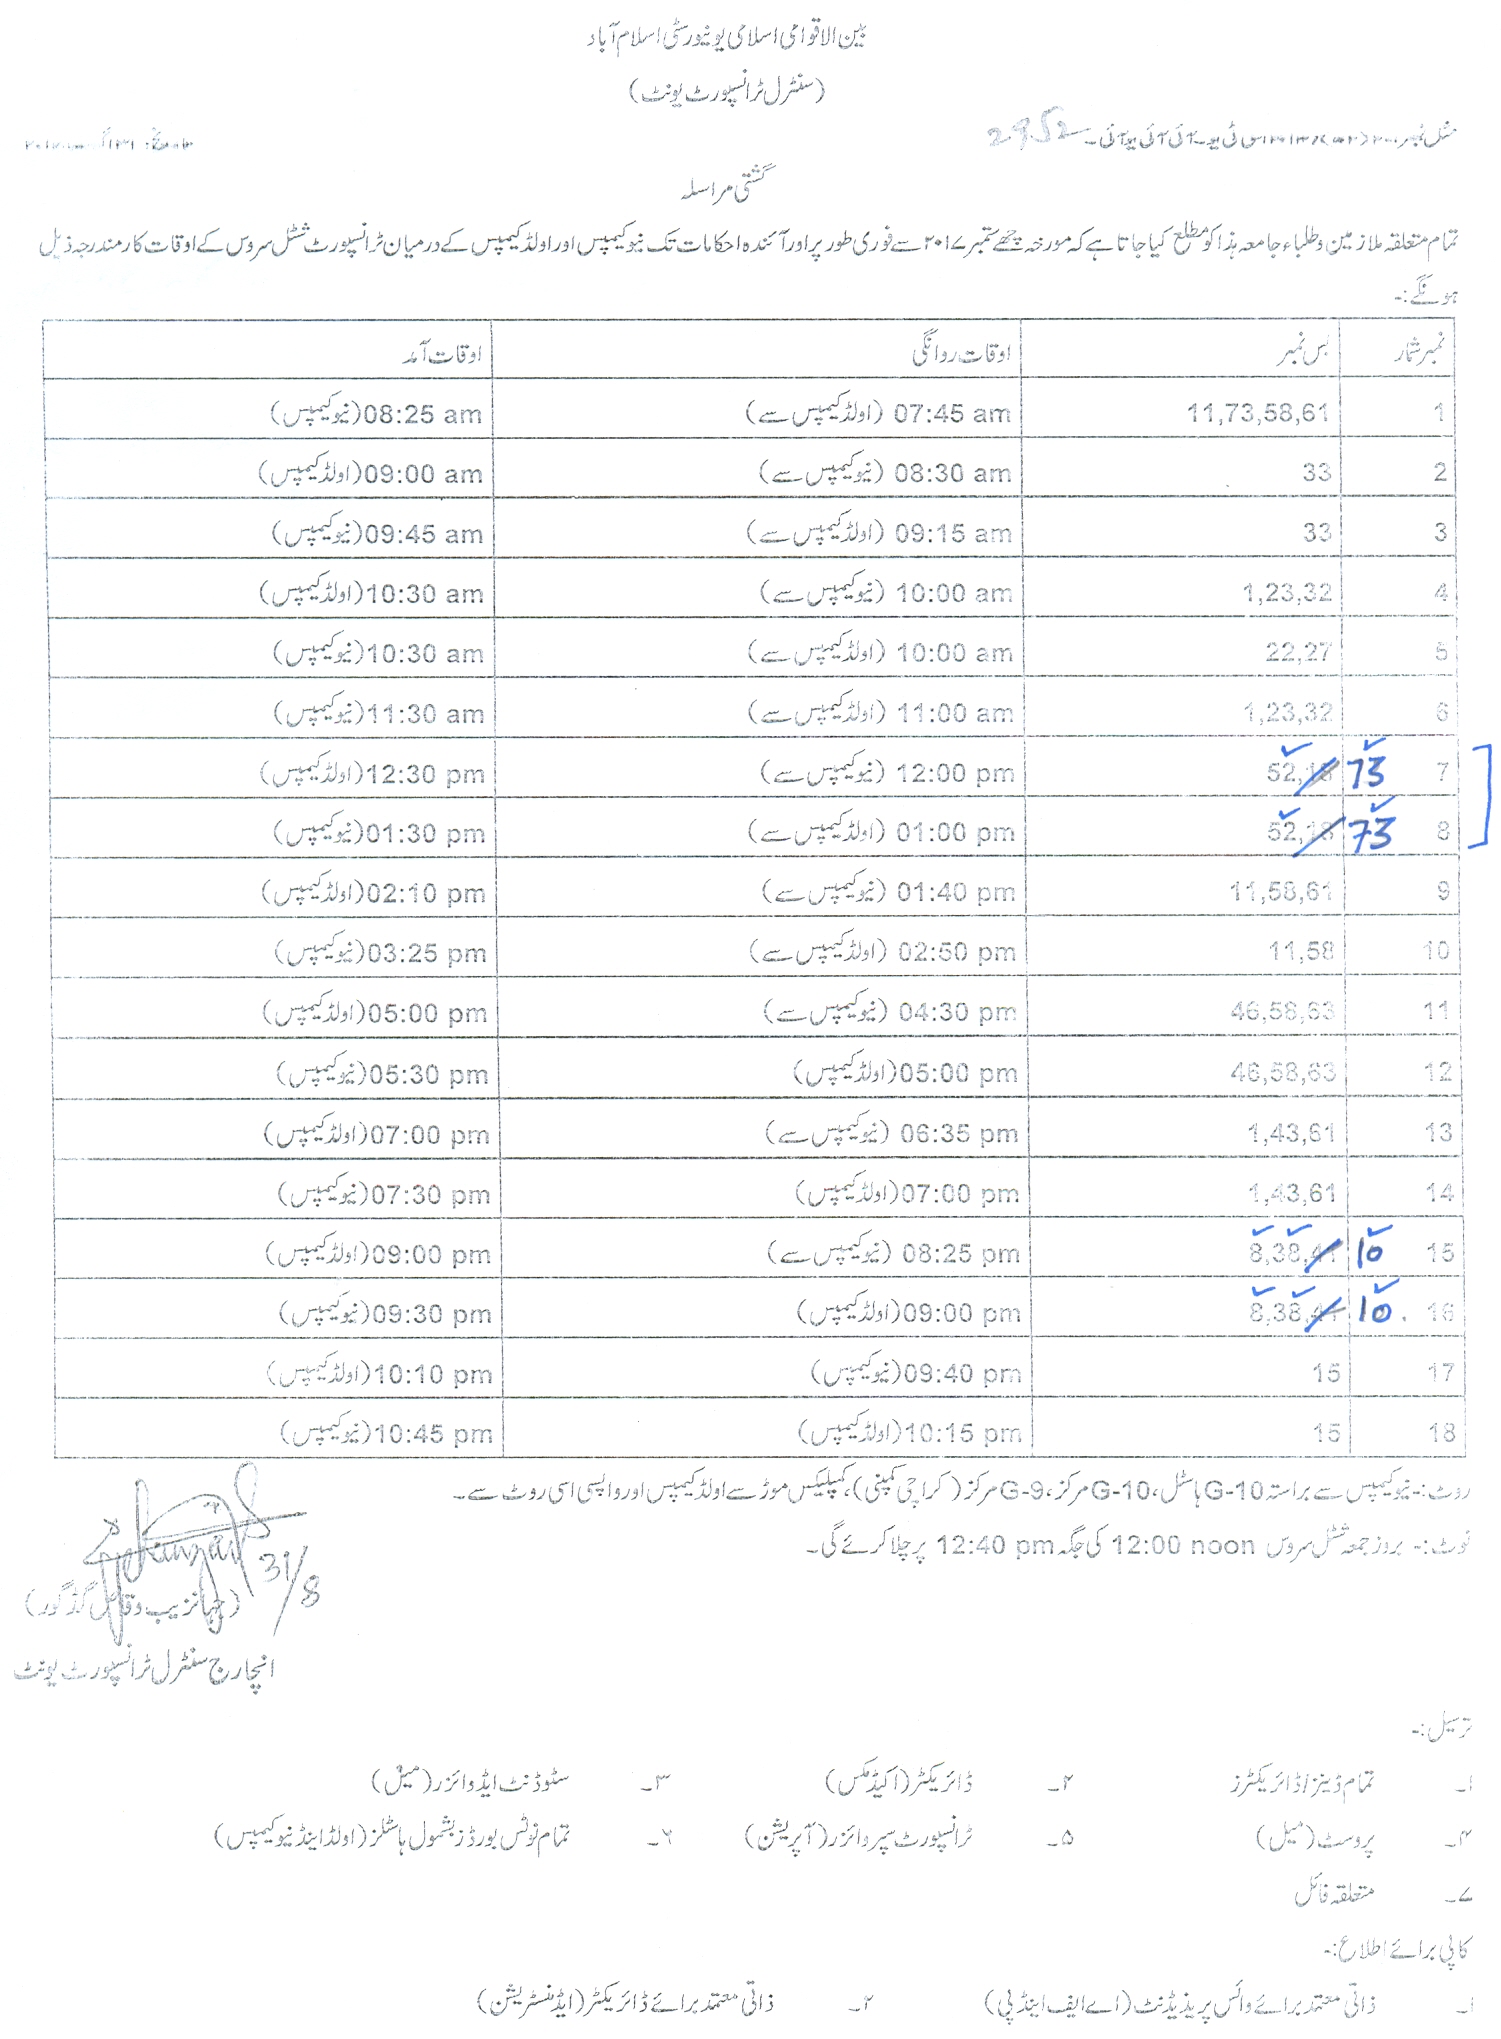 بین الاقوامی اسلامی یونیورسٹی اسلام آباد
(سنٹرل ٹرانسپورٹ یونٹ)
2952
گشتی مراسلہ
تمام متعلقہ ملازمین وطلباء جامعہ ہذا کو مطلع کیا جاتا ہے کہ مورخہ چھے ستمبر ۲۰۱۷ سے فوری طور پر اور آئندہ احکامات تک نیو کیمپس اور اولڈ کیمپس کے درمیان ٹرانسپورٹ شٹل سروس کے اوقات کار مندرجہ ذیل
ہونگے:-
نمبر شمار بس نمبر اوقات روانگی اوقات آمد
1 11,73,58,61 07:45 am (اولڈ کیمپس سے) 08:25 am (نیو کیمپس)
2 33 08:30 am (نیو کیمپس سے) 09:00 am (اولڈ کیمپس)
3 33 09:15 am (اولڈ کیمپس سے) 09:45 am (نیو کیمپس)
4 1,23,32 10:00 am (نیو کیمپس سے) 10:30 am (اولڈ کیمپس)
5 22,27 10:00 am (اولڈ کیمپس سے) 10:30 am (نیو کیمپس)
6 1,23,32 11:00 am (اولڈ کیمپس سے) 11:30 am (نیو کیمپس)
7 73 52,18 12:00 pm (نیو کیمپس سے) 12:30 pm (اولڈ کیمپس)
8 73 52,18 01:00 pm (اولڈ کیمپس سے) 01:30 pm (نیو کیمپس)
9 11,58,61 01:40 pm (نیو کیمپس سے) 02:10 pm (اولڈ کیمپس)
10 11,58 02:50 pm (اولڈ کیمپس سے) 03:25 pm (نیو کیمپس)
11 46,58,63 04:30 pm (نیو کیمپس سے) 05:00 pm (اولڈ کیمپس)
12 46,58,63 05:00 pm (اولڈ کیمپس) 05:30 pm (نیو کیمپس)
13 1,43,61 06:35 pm (نیو کیمپس سے) 07:00 pm (اولڈ کیمپس)
14 1,43,61 07:00 pm (اولڈ کیمپس) 07:30 pm (نیو کیمپس)
15 10 8,38,41 08:25 pm (نیو کیمپس سے) 09:00 pm (اولڈ کیمپس)
16 10 8,38,41 09:00 pm (اولڈ کیمپس) 09:30 pm (نیو کیمپس)
17 15 09:40 pm (نیو کیمپس) 10:10 pm (اولڈ کیمپس)
18 15 10:15 pm (اولڈ کیمپس) 10:45 pm (نیو کیمپس)
روٹ:- نیو کیمپس سے براستہ G-10 ہاسٹل، G-10 مرکز، G-9 مرکز (کراچی کمپنی)، کمپلیکس موڑ سے اولڈ کیمپس اور واپسی اسی روٹ سے۔
نوٹ:- بروز جمعہ شٹل سروس 12:00 noon کی جگہ 12:40 pm پر چلا کرے گی۔
31/8
انچارج سنٹرل ٹرانسپورٹ یونٹ
ترسیل:-
۱۔ تمام ڈینز/ڈائریکٹرز ۲۔ ڈائریکٹر (اکیڈمکس) ۳۔ سٹوڈنٹ ایڈوائزر (میل)
۴۔ پروسٹ (میل) ۵۔ ٹرانسپورٹ سپروائزر (آپریشن) ۶۔ تمام نوٹس بورڈز بشمول ہاسٹلز (اولڈ اینڈ نیو کیمپس)
۷۔ متعلقہ فائل
کاپی برائے اطلاع:-
۱۔ ذاتی معتمد برائے وائس پریذیڈنٹ (اے ایف اینڈ پی) ۲۔ ذاتی معتمد برائے ڈائریکٹر (ایڈمنسٹریشن)